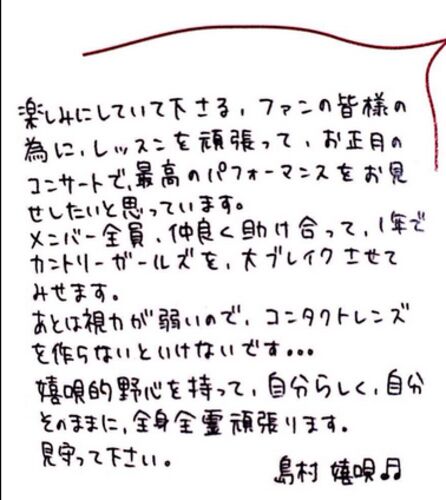 楽しみにしていて下さる、ファンの皆様の
為に、レッスンを頑張って、お正月の
コンサートで、最高のパフォーマンスをお見
せしたいと思っています。
メンバー全員、仲良く助け合って、1年で
カントリーガールズを、大ブレイクさせて
みせます。
あとは視力が弱いので、コンタクトレンズ
を作らないといけないです...
嬉唄的野心を持って、自分らしく、自分
そのままに、全身全霊頑張ります。
見守って下さい。
島村 嬉唄♫